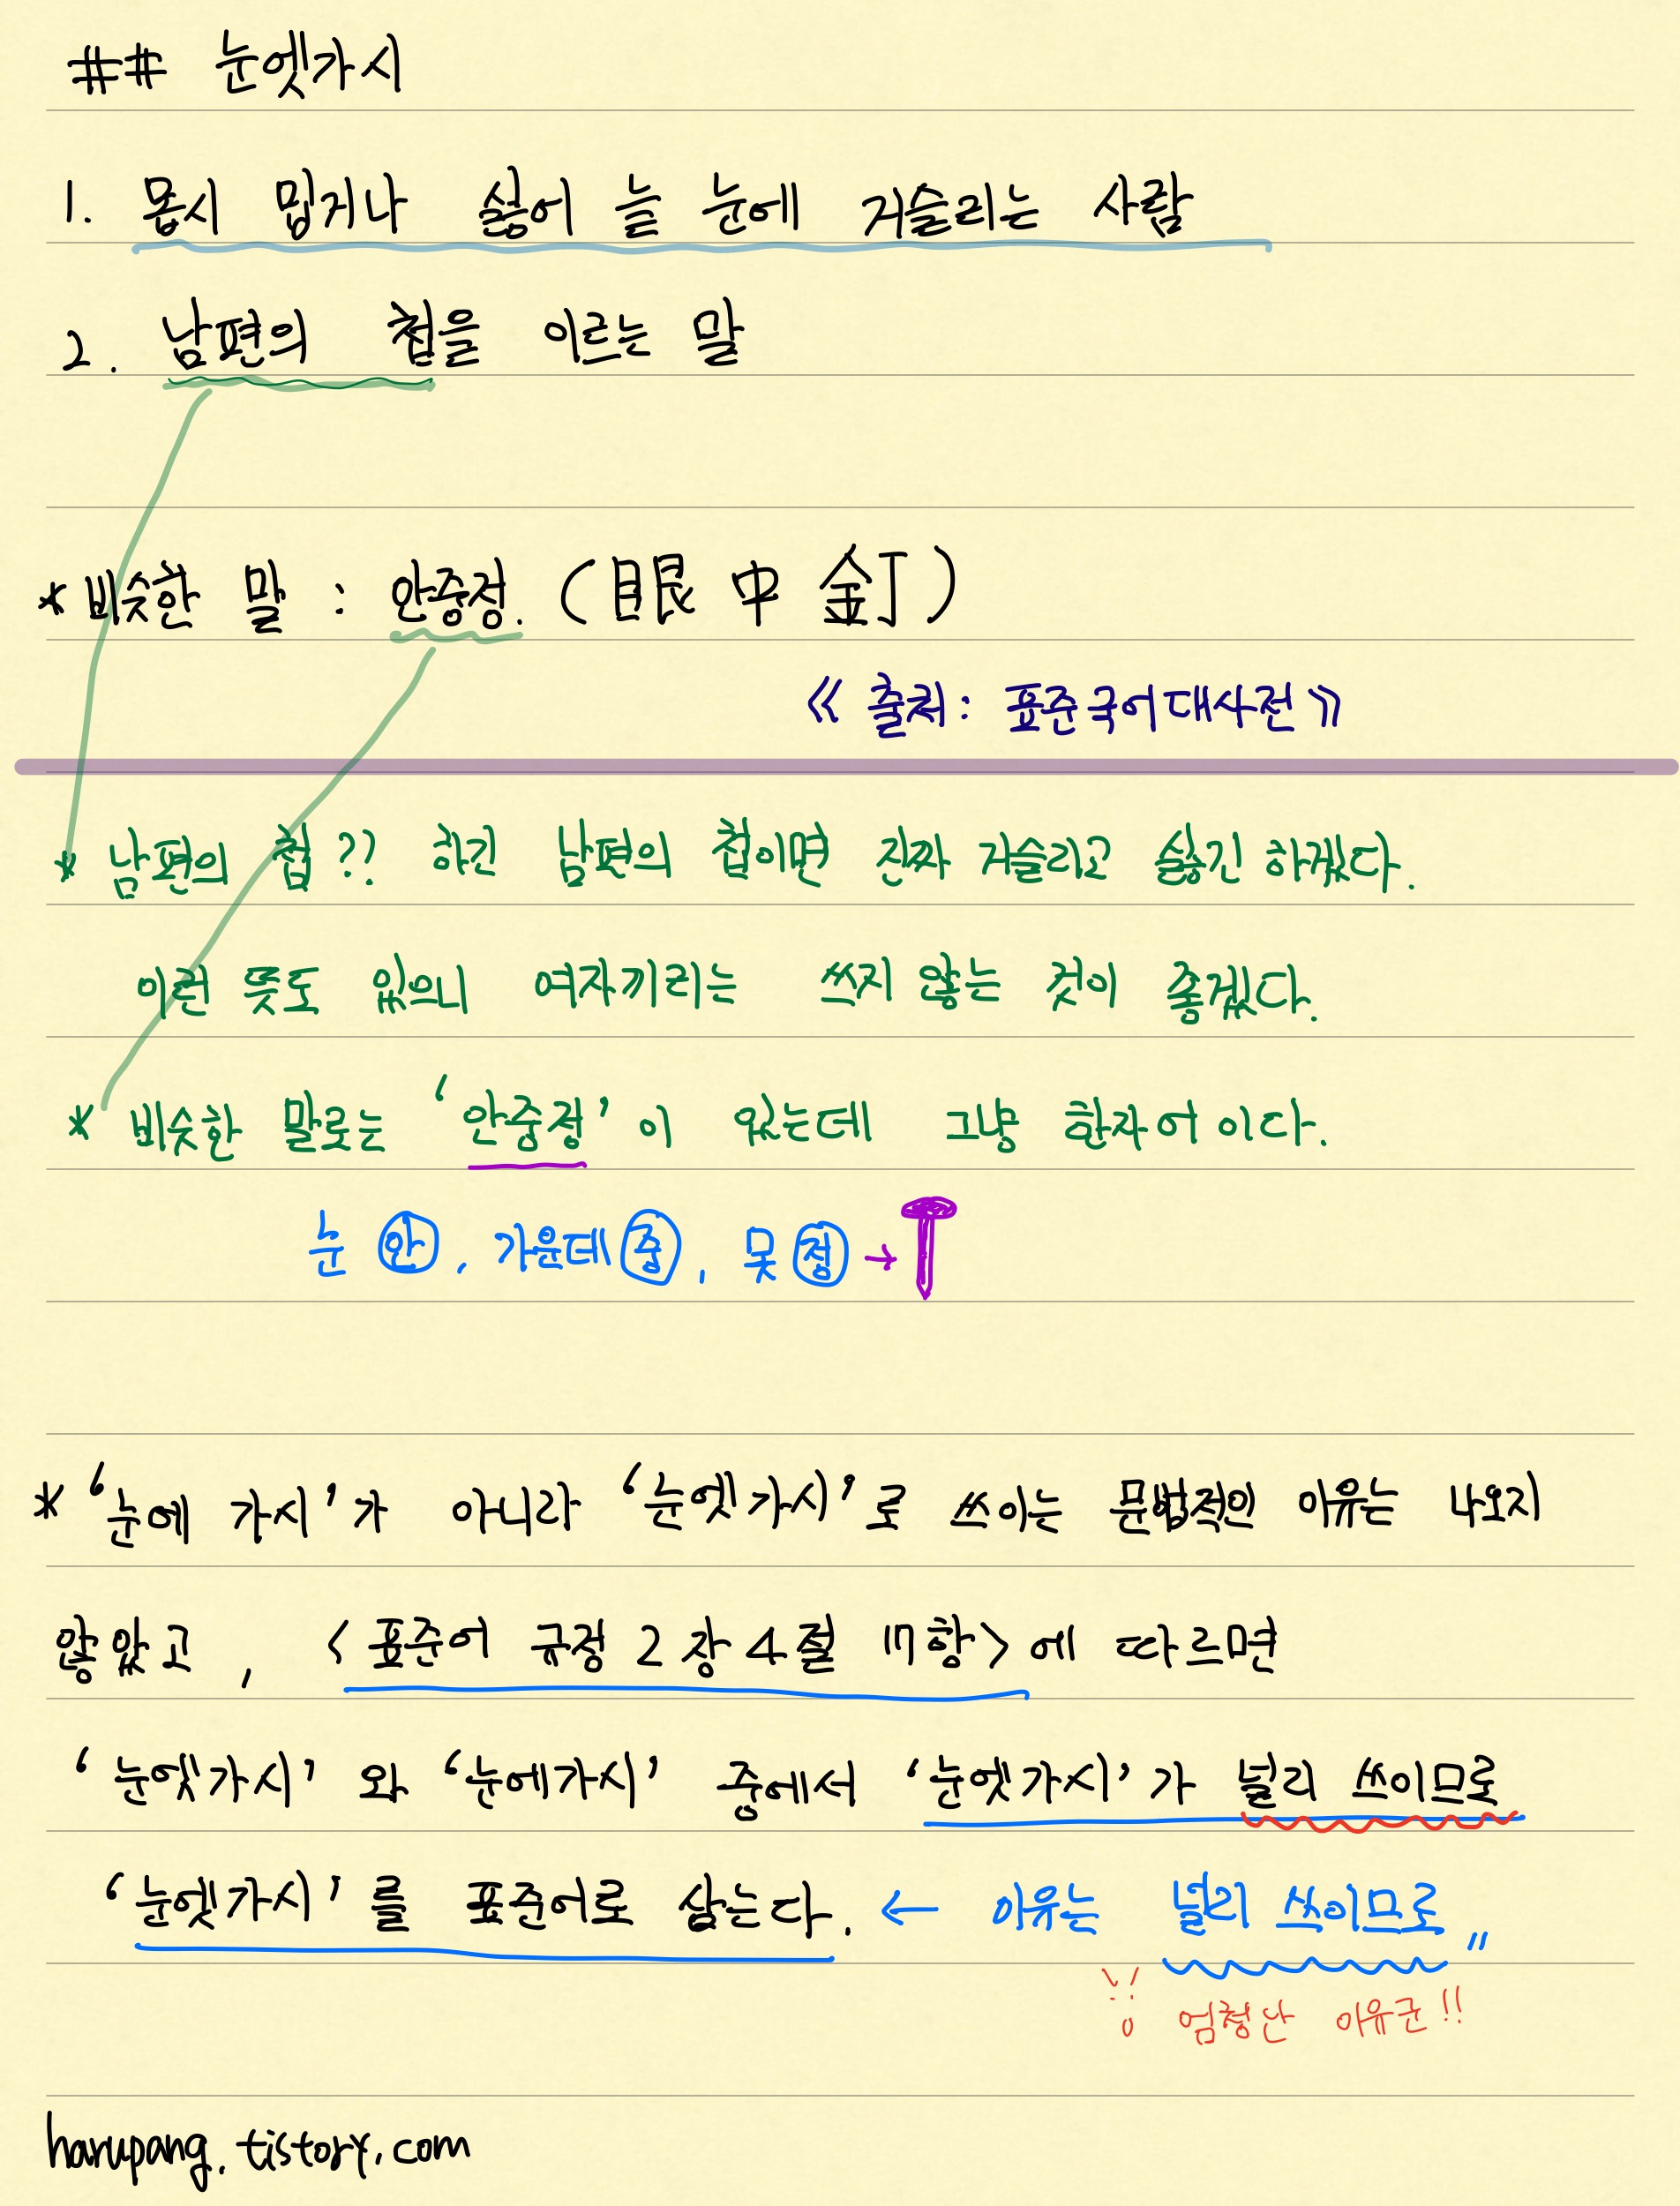 ## 눈엣가시
1. 몹시 밉거나 싫어 늘 눈에 거슬리는 사람
2. 남편의 첩을 이르는 말
* 비슷한 말 : 안중정. (眼中釘)
《 출처: 표준국어대사전 》
* 남편의 첩?? 하긴 남편의 첩이면 진짜 거슬리고 싫긴 하겠다.
이런 뜻도 있으니 여자끼리는 쓰지 않는 것이 좋겠다.
* 비슷한 말로는 '안중정'이 있는데 그냥 한자어이다.
눈 안, 가운데 중, 못 정 →
* '눈에 가시'가 아니라 '눈엣가시'로 쓰이는 문법적인 이유는 나오지
않았고, <표준어 규정 2장 4절 17항>에 따르면
'눈엣가시'와 '눈에가시' 중에서 '눈엣가시'가 널리 쓰이므로
'눈엣가시'를 표준어로 삼는다. ← 이유는 널리 쓰이므로 〃
엄청난 이유군!!
harupang.tistory.com